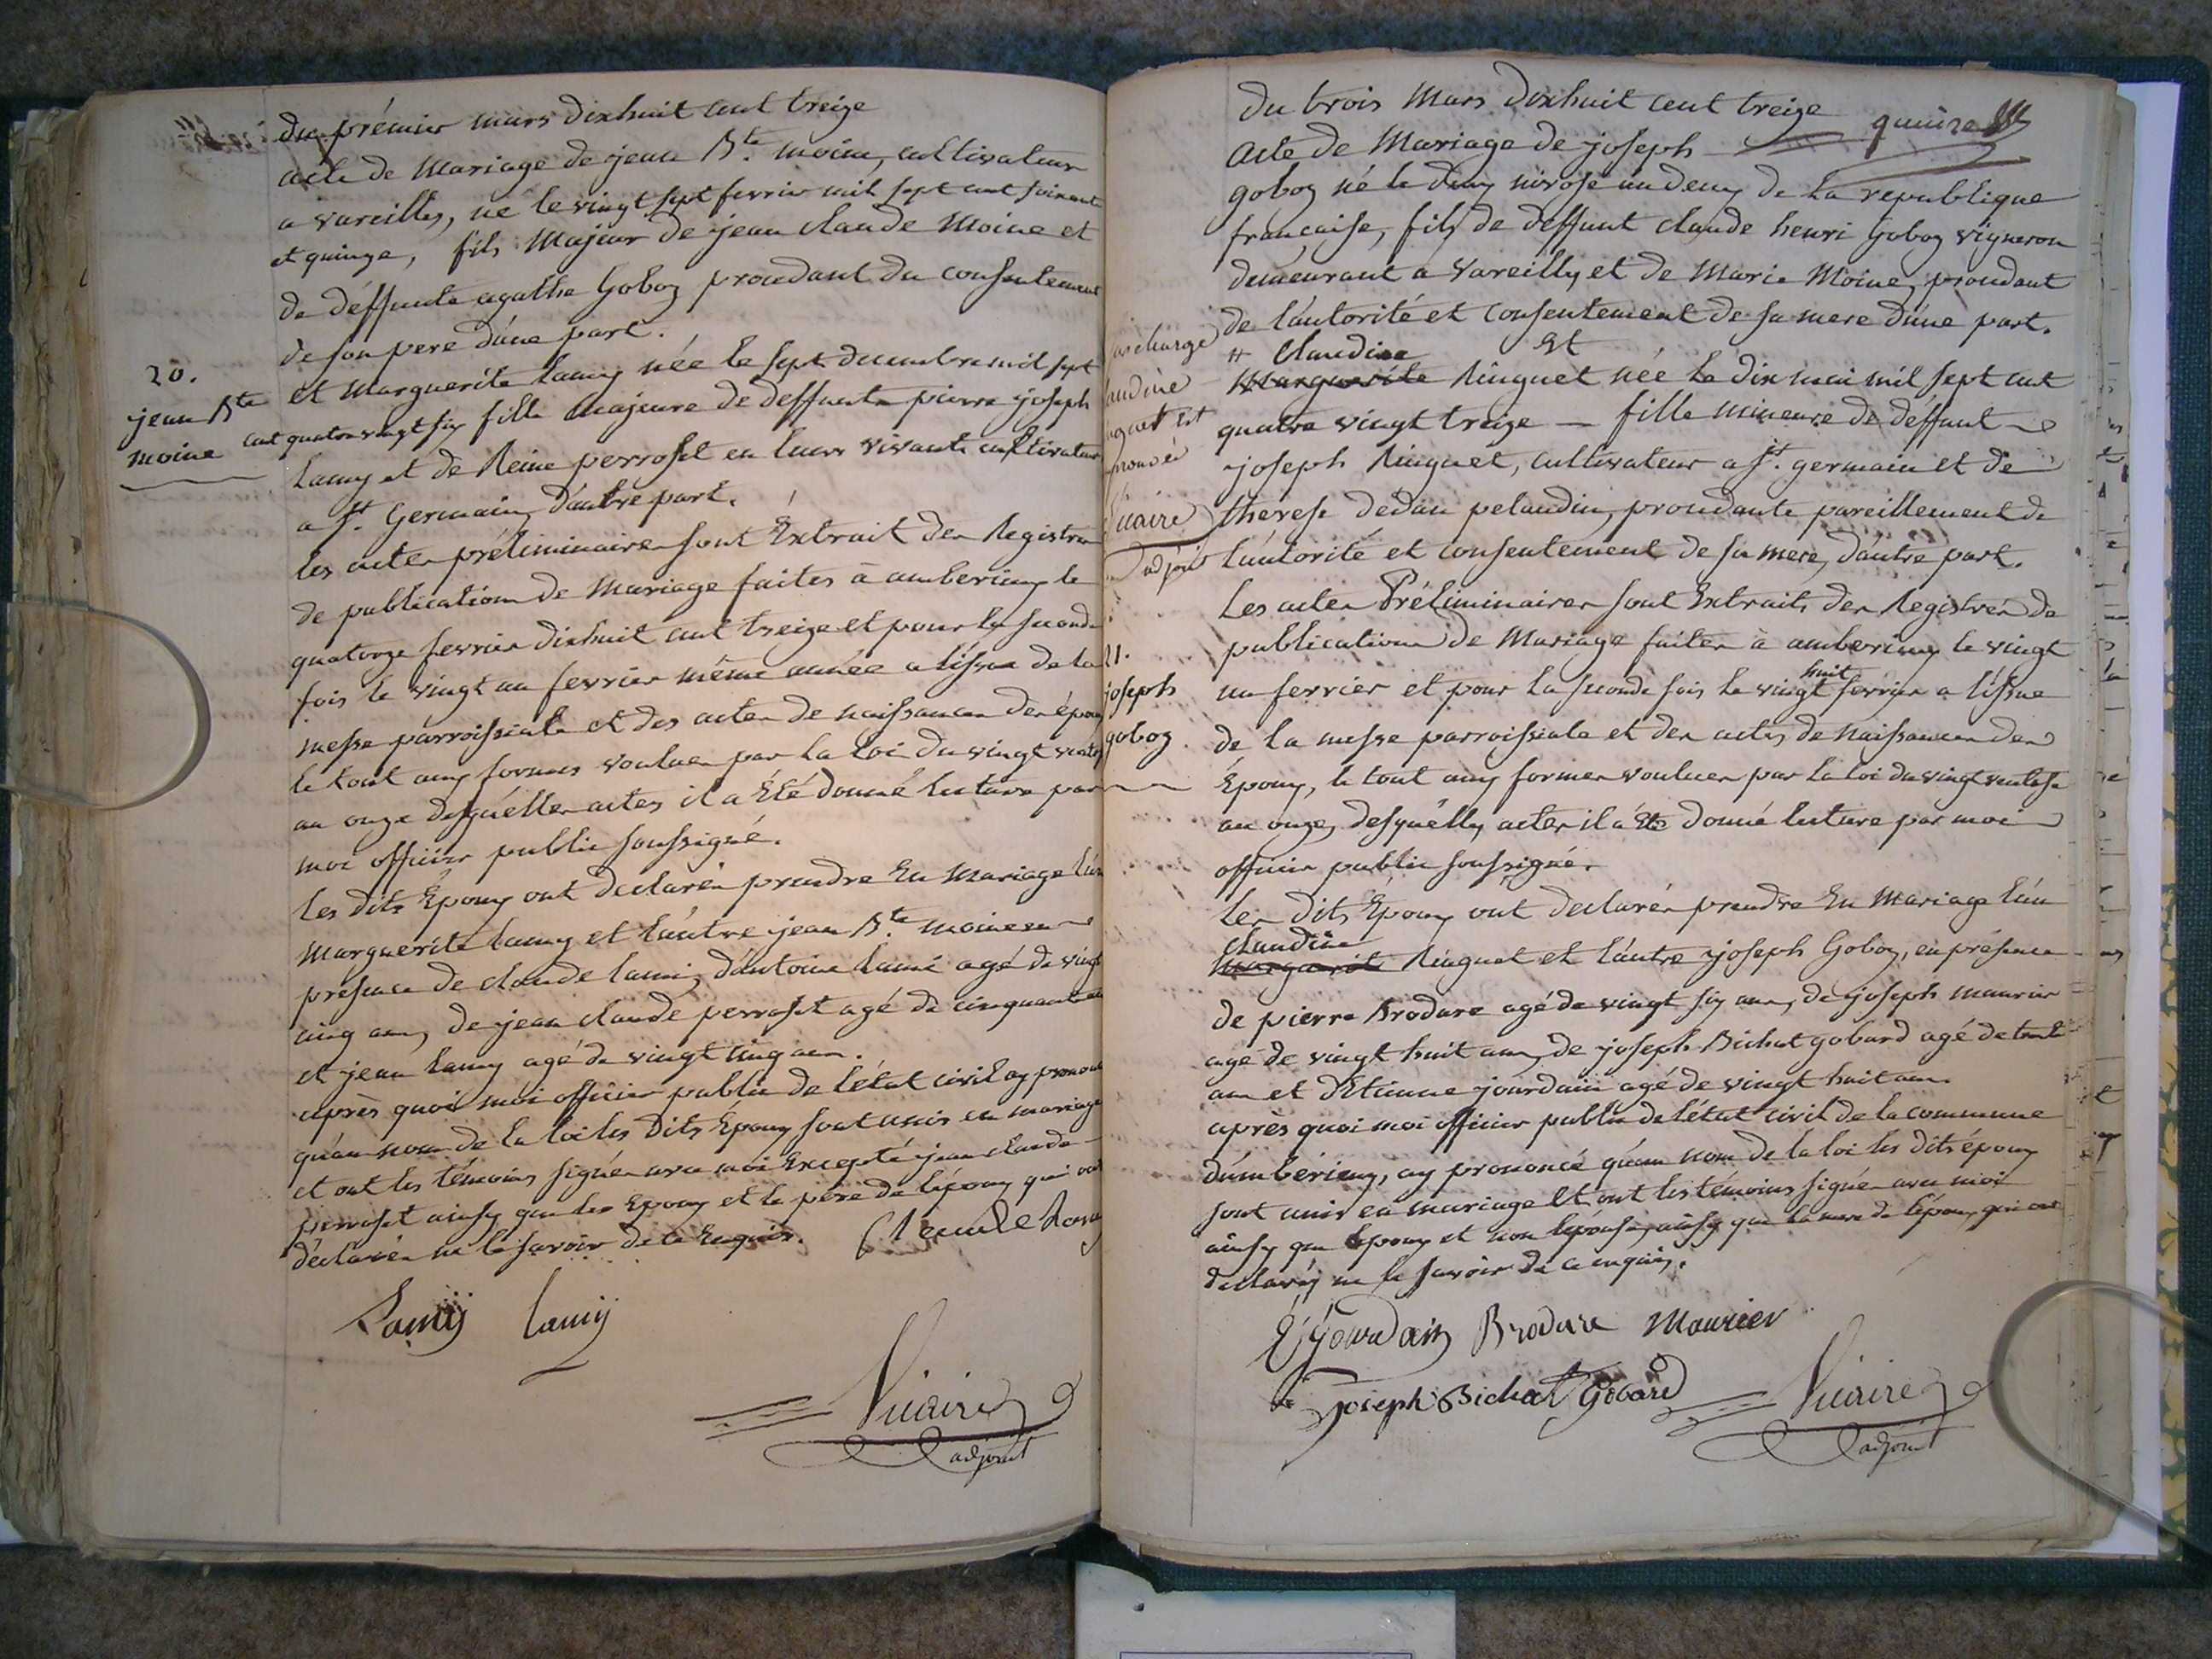 du prémier mars dixhuit cent treize
acte de Mariage de jean Bte. moine, cultivateur
a vareilles, né le vingt sept fevrier mil sept cent soixante
et quinze, fils Majeur de jean claude Moine et
de déffunte agathe Goboz proudant du consentement
de son pere d'une part.
20.
jean Bte
moine
et Marguerite Lamy née le sept decembre mil sept
cent quatre vingt six fille Majeure de deffunts pierre joseph
Lamy et de Reine perroset en leurs vivants cultivateurs
a St. Germain, d'autre part.
les actes préliminaires sont Extrait des Registres
de publications de Mariage faites à amberieux le
quatorze fevrier dixhuit cent treize et pour la seconde
fois le vingt un fevrier même année a lissue de la
messe parroissiale et des actes de naissances des époux
le tout aux formes voulues par la Loi du vingt ventose
an onze desquelles actes il a Eté donné lecture par
moi officier public soussigné.
les dits Epoux ont declarés prendre En Mariage l'un
Marguerite Lamy et l'autre jean Bte. moine en
présence de claude lami, d'antoine Lamé agé de vingt
cinq ans, de jean claude perroset agé de cinquante
et jean Lamy agé de vingt cinq ans.
après quoi moi officier public de l'état civil ay prononcé
qu'au nom de la loi les dits Epoux sont unis en mariage
et ont les témoins signés avec moi Excepté jean claude
perroset ainsy que les Epoux et le père de l'époux qui ont
déclarés ne le savoir de ce Enquis.
Lamÿ lamÿ
Vicaire
adjoint
du trois Mars dixhuit cent treize
Acte de Mariage de joseph
goboz né le deux nivose an deux de la republique
française, fils de deffunt claude henri Goboz vigneron
demeurant a Vareilly et de Marie Moine, proudant
de l'autorité et consentement de sa mere d'une part.
# Claudine Et
Marguerite Ringuet née le dix mai mil sept cent
quatre vingt treize — fille mineure de déffunt
joseph Ringuet, cultivateur a St. germain et de
therese dédan pelaudin, proudante pareillement de
l'autorité et consentement de sa mere, d'autre part.
Les actes Préliminaires sont Extraits des Registres de
publications de Mariage faites à amberieux le vingt
huit
un fevrier et pour la seconde fois le vingt fevrier a lissue
21.
joseph
goboz
de la messe parroissiale et des actes de naissances des
Epoux, le tout aux formes voulues par la loi du vingt ventose
an onze, desquelles actes il a Eté donné lecture par moi
officier public soussigné.
les dits Epoux ont declarés prendre En Mariage l'un
Claudine
Marguerit Ringuet et l'autre joseph Goboz, en présence
de pierre Brodure agé de vingt six ans, de joseph maurier
agé de vingt huit ans, de joseph Bichat gobard agé de trente
ans et d'Etienne jourdain agé de vingt huit ans.
après quoi moi officier public de l'état civil de la commune
d'ambérieux, ay prononcé qu'au nom de la loi les dits époux
sont unis en mariage et ont les témoins signés avec moi
ainsy que l'époux et non l'épouse, ainsy que la mere de l'époux qui ont
declarés ne le savoir de ce enquis.
E Jourdain Brodure Maurier
Joseph Bichat Gobard
Vicaire
adjoint